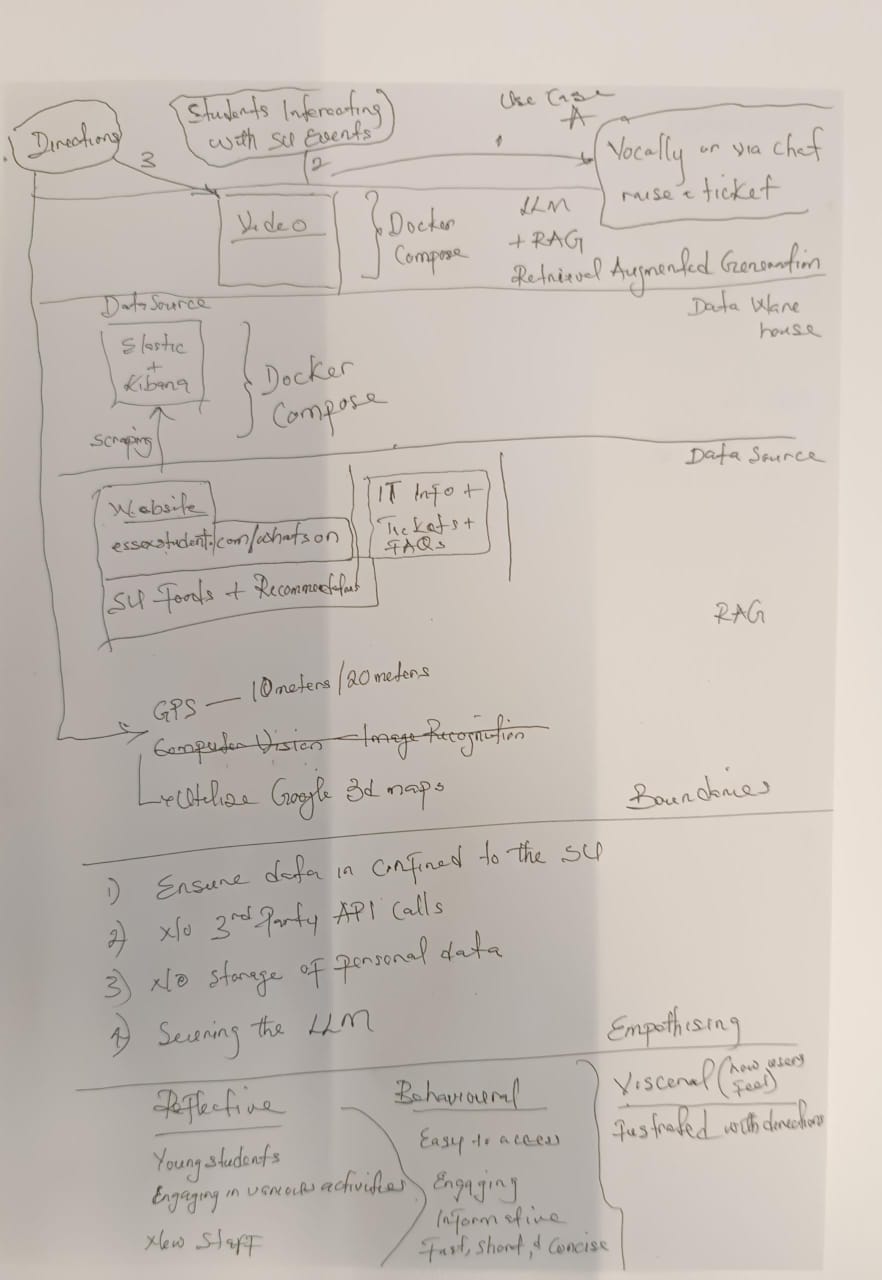 Use Case
A
Directions
3
Students Interacting
with SU Events
2
1
Vocally or via chat
raise a ticket
Video
Docker
Compose
LLM
+ RAG
Retrieval Augmented Generation
Data Source
Data Ware
house
Elastic
+
Kibana
Docker
Compose
Scraping
Data Source
Website
essexstudent.com/whatson
SU Foods + Recommendation
IT Info +
Tickets +
FAQs
RAG
GPS — 10meters/20meters
Computer Vision — Image Recognition
Utilize Google 3d maps
Boundaries
1) Ensure data is confined to the SU
2) No 3rd Party API Calls
3) No storage of personal data
4) Securing the LLM
Empathising
Reflective
Young students
Engaging in various activities
New Staff
Behavioural
Easy to access
Engaging
Informative
Fast, short, & Concise
Visceral (how users
feel)
Fustrated with directions